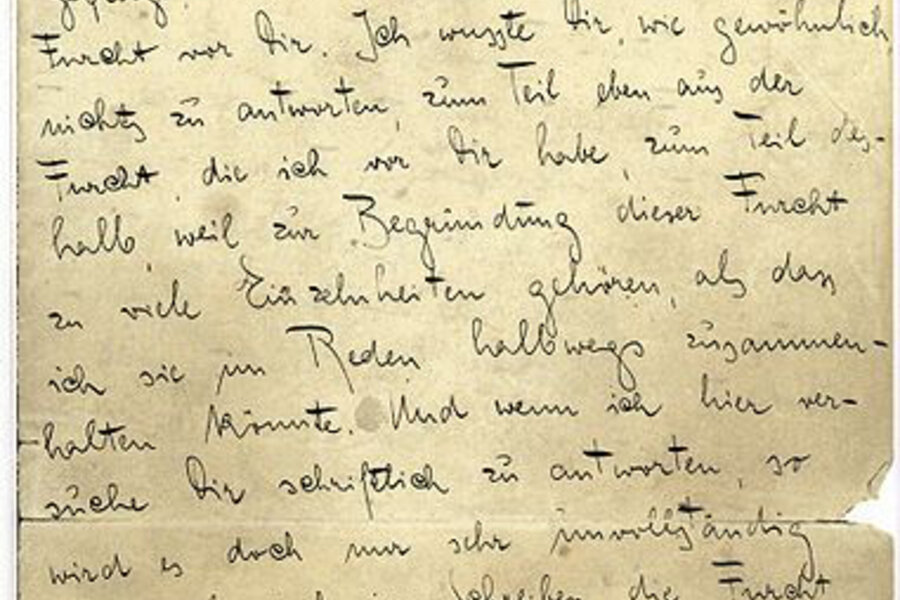 Furcht vor Dir. Ich wusste Dir, wie gewöhnlich,
nichts zu antworten, zum Teil eben aus der
Furcht, die ich vor Dir habe, zum Teil des-
halb, weil zur Begründung dieser Furcht
zu viele Einzelnheiten gehören, als dass
ich sie im Reden halbwegs zusammen-
halten könnte. Und wenn ich hier ver-
suche Dir schriftlich zu antworten, so
wird es doch nur sehr unvollständig
Schreiben die Furcht